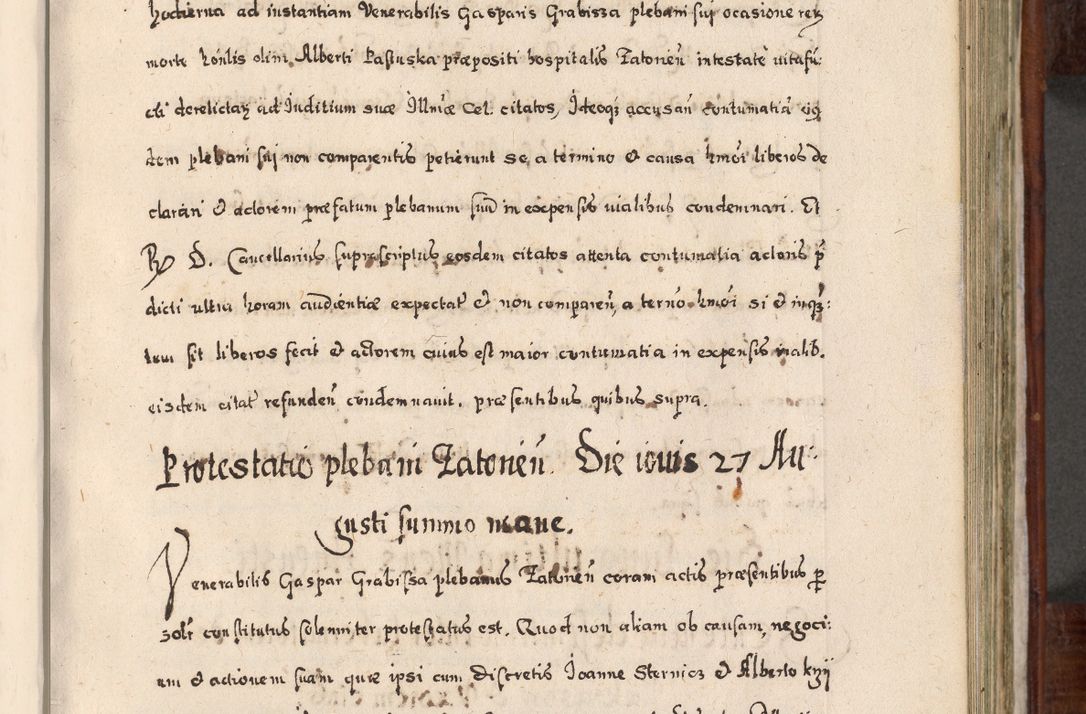 hodierna ad instantiam Venerabilis Gasparis Grabissa plebani sui ocasione rerum
morte hon̄lis olim Alberti Pastuska præpositi hospitalis Zatorien̄ intestatè vita fun:
cti derelictarum ad Iuditium suæ Illm̄æ Cel. citatos, Ideoq; accusan̄ contumatiā eiq
dem plebani sui non comparentis petierunt se a termino & causa hmōi liberos de
clarari & actorem præfatum plebanum suū in expensis vialibus condemnari. Et
R D. Cancellarius suprascriptus eosdem citatos attenta contumatia actoris p̄
dicti ultra horam audientiæ expectat & non comparen̄, a termō hmōi si & inq;:
tum sit liberos fecit & actorem cuius est maior contumatia in expensis vialib.
eisdem citat refunden̄ condemnauit. præsentibus quibus supra.
Protestatio plebani Zatorien̄. Die iouis 27 Au:
gusti summo mane.
Venerabilis Gaspar Grabissa plebanus Zatorien̄ coram actis præsentibus per
solr̄ constitutus solenniter protestatus est. Quod non aliam ob causam, negoci:
um & actionem suam quæ ipsi cum discretis Ioanne Sternicz & Alberto